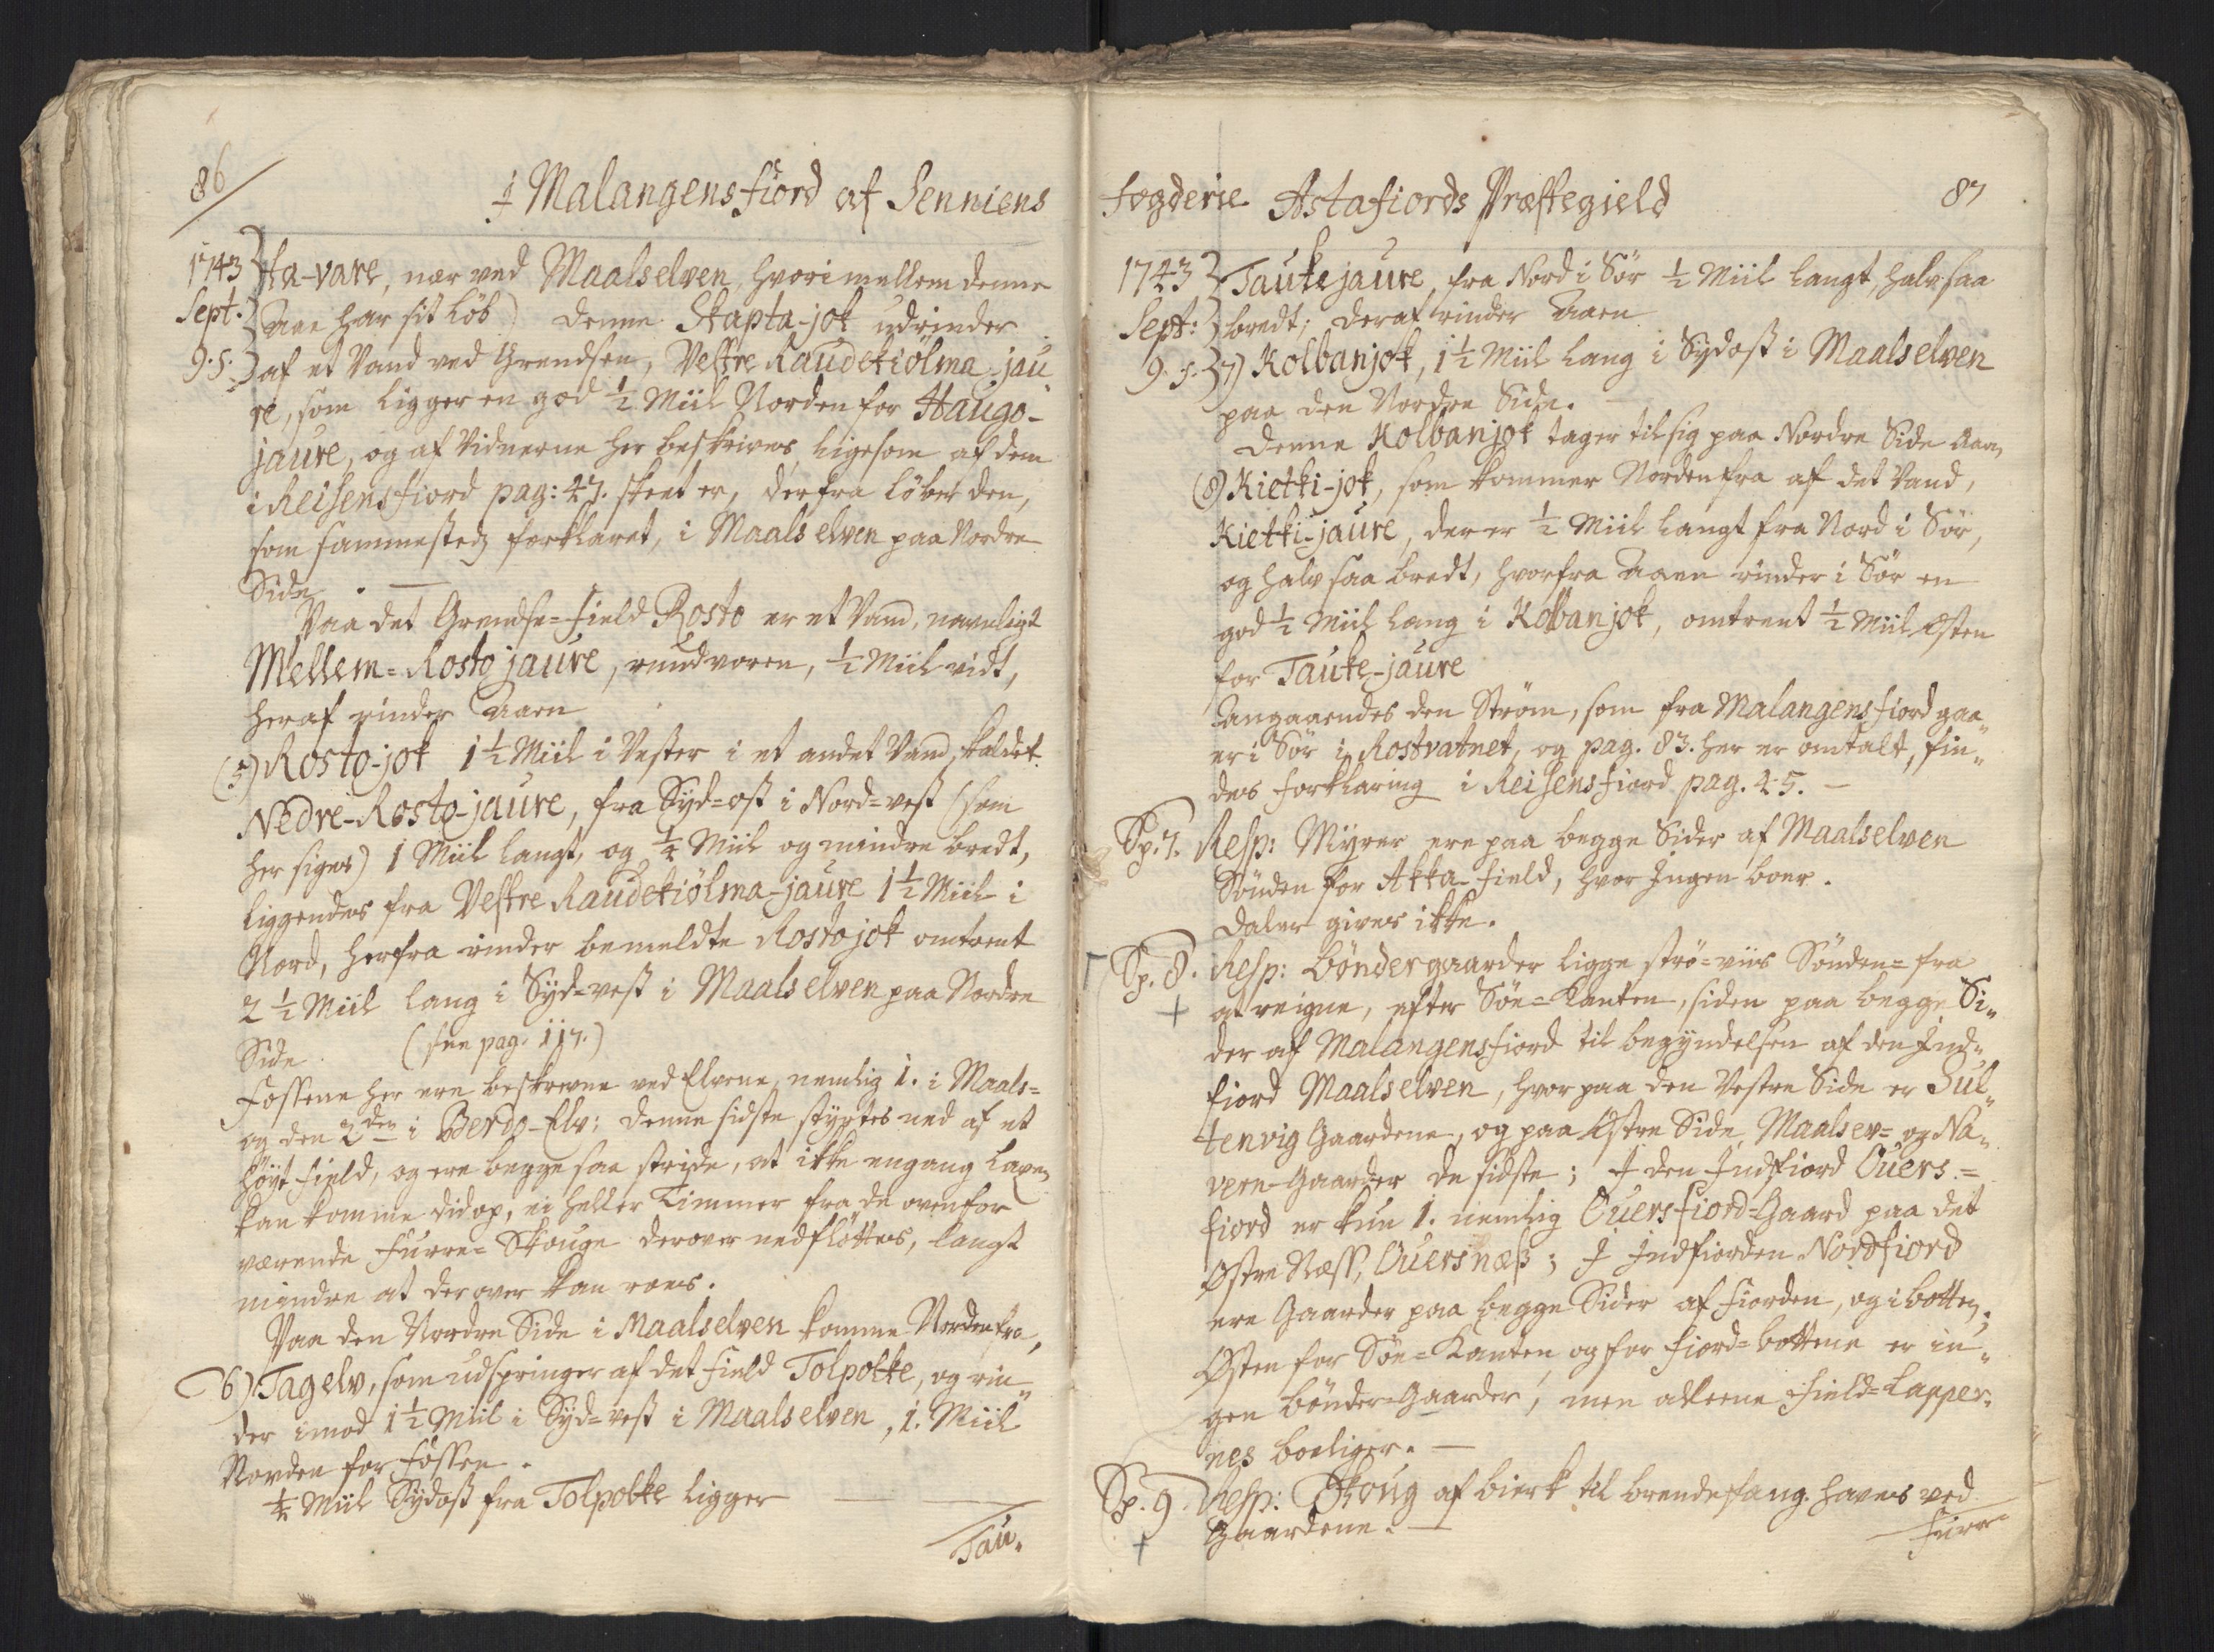 86
I Malangensfiord af Senniens
1743 Sept. 9. s.
ta-vare, nær ved Maalselven, hvorimellem denne
Aae har sit Löb) denne Skapta-jok udrinder
af et Vand ved Grendsen, Vestre Raudekiölma-jau-
re, som ligger en god ½ Miil Norden for Haugo-
jaure, og af Vidnerne her beskrives ligesom af dem
i Reisensfiord pag: 47. skeet er, derfra löber den,
som sammestedz forklaret, i Maalselven paa Nordre
Side. —
Paa det Grendse-Field Rosto er et Vand, navnligt
Mellem-Rosto jaure, rundvoren, ½ Miil vidt,
heraf rinder Aaen
(5) Rosto-jok 1½ Miil i Vester i et andet Vand, kaldet
Nedre-Rosto-jaure, fra Syd-ost i Nord-vest (som
her siges) 1 Miil langt, og ¼ Miil og mindre bredt,
liggendes fra Vestre Raudekiölma-jaure 1½ Miil i
Nord, herfra rinder bemeldte Rostojok omtrent
2½ Miil lang i Syd-vest i Maalselven paa Nordre
Side. (see pag. 117.)
Fossene her ere beskrevne ved Elvene, nemlig 1. i Maals-
og den 2den i Berdo-Elv: denne sidste styrtes ned af et
höyt Field, og ere begge saa stride, at ikke engang Laxen
kan komme did op, ei heller Timmer fra de ovenfor
værende Furre-Skouge derover nedflöttes, langt
mindre at derover kan roes.
Paa den Nordre Side i Maalselven komme Nordenfra,
6) Tagelv, som udspringer af det Field Tolpokke, og rin-
der imod 1½ Miil i Syd-vest i Maalselven, 1. Miil
Norden for Fossen.
¼ Miil Sydost fra Tolpokke ligger —
Tau-
Fogderie Astafiords Præstegield
87
1743 Sept: 9. s.
Taukejaure, fra Nord i Sör ½ Miil langt, halv saa
bredt; deraf rinder Aaen
7) Kolbanjok, 1½ Miil lang i Sydost i Maalselven
paa den Nordre Side.
Denne Kolbanjok tager til sig paa Nordre Side Aaen
(8) Kietki-jok, som kommer Nordenfra af det Vand,
Kietki-jaure, der er ½ Miil langt fra Nord i Sör,
og halv saa bredt, hvorfra Aaen rinder i Sör en
god ½ Miil lang i Kolbanjok, omtrent ½ Miil Østen
for Tauke-jaure
Angaaendes den Ström, som fra Malangensfiord gaa-
er i Sör i Rostvatnet, og pag. 83. her er omtalt, fin-
des forklaring i Reisensfiord pag. 45. —
Sp. 7. Resp: Myrer ere paa begge Sider af Maalselven
Sönden for Akka-Field, hvor Ingen boer.
Daler gives ikke.
Sp. 8. Resp: Böndergaarder ligge strö-viis Sönden-fra
+ at reigne, efter Söe-Kanten, siden paa begge Si-
der af Malangensfiord til begyndelsen af den Ind-
fiord Maalselven, hvor paa den Vestre Side er Gul-
tenvig Gaardene, og paa Østre Side, Maalsev- og Na-
vern-Gaarder de sidste; I den Indfiord Ouers-
fiord er kun 1. nemlig Ouersfiord-Gaard paa det
Østre Næss, Ouersnæss; I Indfiorden Nordfiord
ere Gaarder paa begge Sider af Fiorden, og i botten;
Østen for Söe-Kanten og for Fiord-bottene er in-
gen bönder-Gaarder, men alleene Field-Lapper-
nes boeliger. —
Sp. 9. Resp: Skoug af bierk til brendefang haves ved
+ Gaardene. —
Furre-